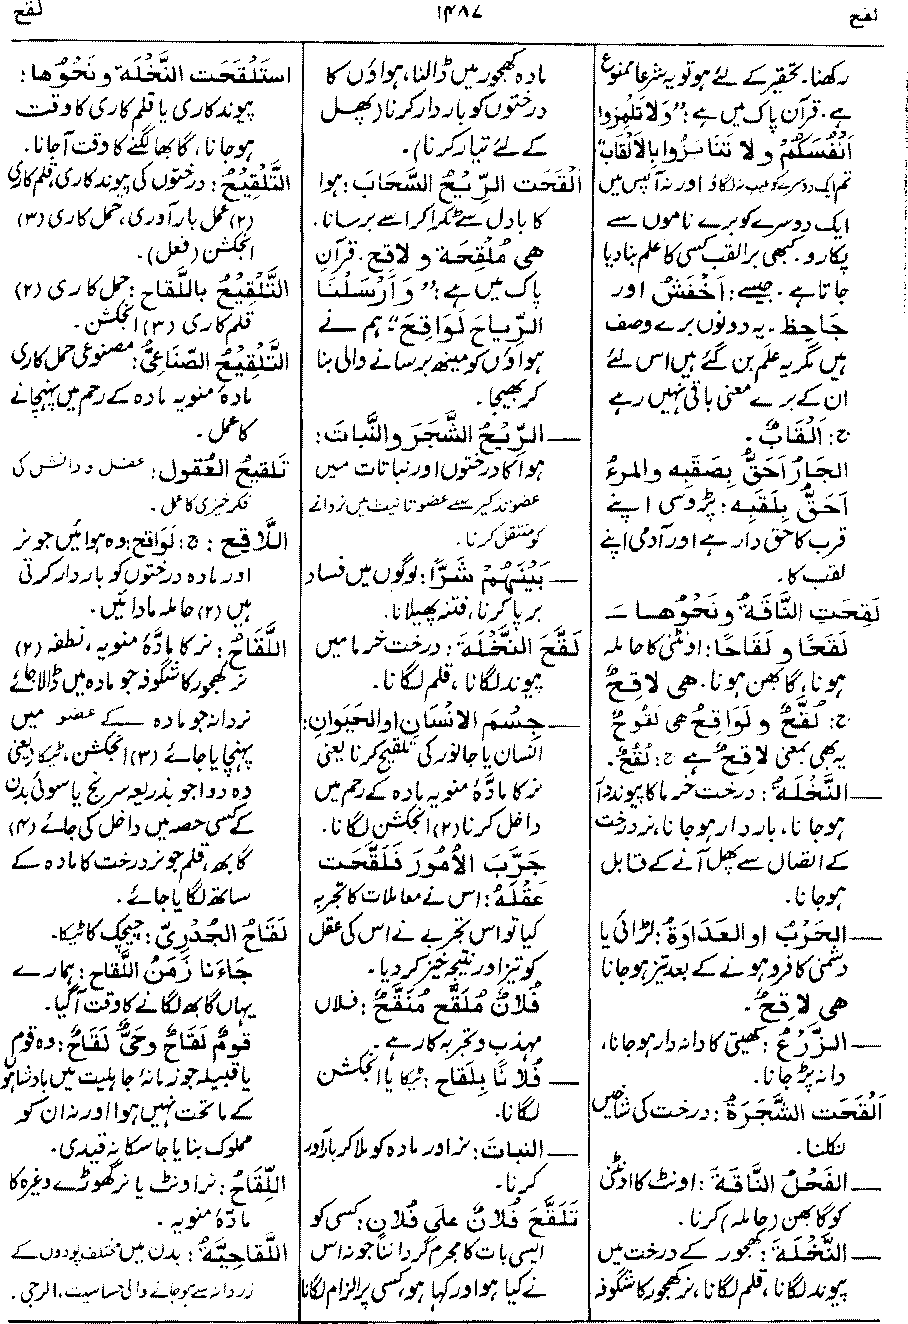 لقح
۱۴۸۷
لقح
رکھنا۔ تحقیر کے لئے ہو تو یہ شرعا ممنوع
ہے۔ قرآن پاک میں ہے: "وَلَا تَلْمِزُوا
اَنْفُسَکُمْ وَلَا تَنَابَزُوا بِالْاَلْقَابِ"
تم ایک دوسرے کو عیب نہ لگاؤ اور نہ آپس میں
ایک دوسرے کو برے ناموں سے
پکارو۔ کبھی برا لقب کسی کا علم بنا دیا
جاتا ہے۔ جیسے: اَخْفَشُ اور
جَاحِظ۔ یہ دونوں برے وصف
ہیں مگر یہ علم بن گئے ہیں اس لئے
ان کے برے معنی باقی نہیں رہے
ج: اَلْقَابٌ۔
الجَارُ اَحَقُّ بِصَقَبِه والمرءُ
اَحَقُّ بِلَقَبِه: پڑوسی اپنے
قرب کا حق دار ہے اور آدمی اپنے
لقب کا۔
لَقِحَتِ النَّاقَةُ ونَحْوُها ـَ
لَقَحًا و لَقَاحًا: اونٹنی کا حاملہ
ہونا، گابھن ہونا۔ هی لَاقِحٌ
ج: لُقَّحٌ و لَوَاقِحُ هی لَقُوحٌ
یہ بھی بمعنی لَاقِحٌ ہے ج: لُقُحٌ۔
— النَّخْلَةُ: درخت خرما کا پیوند زدہ
ہو جانا، بار دار ہو جانا، نر درخت
کے اتصال سے پھل آنے کے قابل
ہو جانا۔
— الحَرْبُ او العَدَاوَةُ: لڑائی یا
دشمنی کا فرو ہونے کے بعد تیز ہو جانا
هی لَاقِحٌ۔
— الزَّرْعُ: کھیتی کا دانہ دار ہو جانا،
دانہ پڑ جانا۔
اَلْقَحَتِ الشَّجَرَةُ: درخت کی شاخیں
نکلنا۔
— الفَحْلُ النَّاقَةَ: اونٹ کا اونٹنی
کو گابھن (حاملہ) کرنا۔
— النَّخْلَةَ: کھجور کے درخت میں
پیوند لگانا، قلم لگانا، نر کھجور کا شگوفہ
مادہ کھجور میں ڈالنا، ہواؤں کا
درختوں کو بار دار کرنا (پھل
کے لئے تیار کرنا)۔
اَلْقَحَتِ الرِّيْحُ السَّحَابَ: ہوا
کا بادل سے ٹکرا کر اسے برسانا۔
هی مُلْقِحَة و لاقِح۔ قرآن
پاک میں ہے: "وَاَرْسَلْنَا
الرِّيَاحَ لَوَاقِحَ" ہم نے
ہواؤں کو مینھ برسانے والی بنا
کر بھیجا۔
— الرِّيْحُ الشَّجَرَ والنَّباتَ:
ہوا کا درختوں اور نباتات میں
عضو تذکیر سے عضو تانیث میں زردانے
کو منتقل کرنا۔
— بَيْنَهُمْ شَرًّا: لوگوں میں فساد
برپا کرنا، فتنہ پھیلانا۔
لَقَّحَ النَّخْلَةَ: درخت خرما میں
پیوند لگانا، قلم لگانا۔
— جِسْمَ الاِنْسَانِ او الحَيَوانِ:
انسان یا جانور کی تلقیح کرنا یعنی
نر کا مادّۂ منویہ مادہ کے رحم میں
داخل کرنا (۲) انجکشن لگانا۔
جَرَّبَ الاُمُورَ فَلَقَّحَت
عَقْلَهُ: اس نے معاملات کا تجربہ
کیا تو اس تجربے نے اس کی عقل
کو تیز اور نتیجہ خیز کر دیا۔
فُلَانٌ مُلَقَّحٌ مُنَقَّحٌ: فلاں
مہذب و تجربہ کار ہے۔
— فُلَانًا بِلَقَاحٍ: ٹیکا یا انجکشن
لگانا۔
— النباتَ: نر اور مادہ کو ملا کر بارآور
کرنا۔
تَلَقَّحَ فُلَانٌ علی فُلَانٍ: کسی کو
ایسی بات کا مجرم گرداننا جو نہ اس
نے کیا ہو اور کہا ہو، کسی پر الزام لگانا
اسْتَلْقَحَتِ النَّخْلَةُ ونَحْوُها:
پیوند کاری یا قلم کاری کا وقت
ہو جانا، گابھا لگنے کا وقت آ جانا۔
التَّلْقِيْحُ: درختوں کی پیوند کاری، قلم کاری
(۲) عمل بار آوری، حمل کاری (۳)
انجکشن (فعل)۔
التَّلْقِيْحُ بِاللَّقَاحِ: حمل کاری (۲)
قلم کاری (۳) انجکشن۔
التَّلْقِيْحُ الصِّنَاعِیُّ: مصنوعی حمل کاری
مادۂ منویہ مادہ کے رحم میں پہنچانے
کا عمل۔
تَلْقِيحُ العُقُولِ: عقل و دانش کی
فکر خیزی کا عمل۔
اللَّاقِحُ: ج: لَوَاقِحُ: وہ ہوائیں جو نر
اور مادہ درختوں کو بار دار کرتی
ہیں (۲) حاملہ مادائیں۔
اللَّقَاحُ: نر کا مادّۂ منویہ، نطفہ (۲)
نر کھجور کا شگوفہ جو مادہ میں ڈالا جائے
زردانہ جو مادہ کے عضو میں
پہنچایا جائے (۳) انجکشن، ٹیکا (یعنی
وہ دوا جو بذریعہ سرنج یا سوئی بدن
کے کسی حصہ میں داخل کی جائے (۴)
گابھہ، قلم جو نر درخت کا مادہ کے
ساتھ لگایا جائے۔
لَقَاحُ الجُدَرِيِّ: چیچک کا ٹیکا۔
جَاءَنا زَمَنُ اللَّقَاحِ: ہمارے
یہاں گابھہ لگانے کا وقت آ گیا۔
قَومٌ لَقَاحٌ وحَیٌّ لَقَاحٌ: وہ قوم
یا قبیلہ جو زمانۂ جاہلیت میں بادشاہ
کے ماتحت نہیں ہوا اور نہ ان کو
مملوک بنایا جا سکا نہ قیدی۔
اللِّقَاحُ: نر اونٹ یا نر گھوڑے وغیرہ کا
مادّۂ منویہ۔
اللَّقَاحِيَّةُ: بدن میں مختلف پودوں کے
زردانہ سے ہو جانے والی حساسیت، الرجی۔